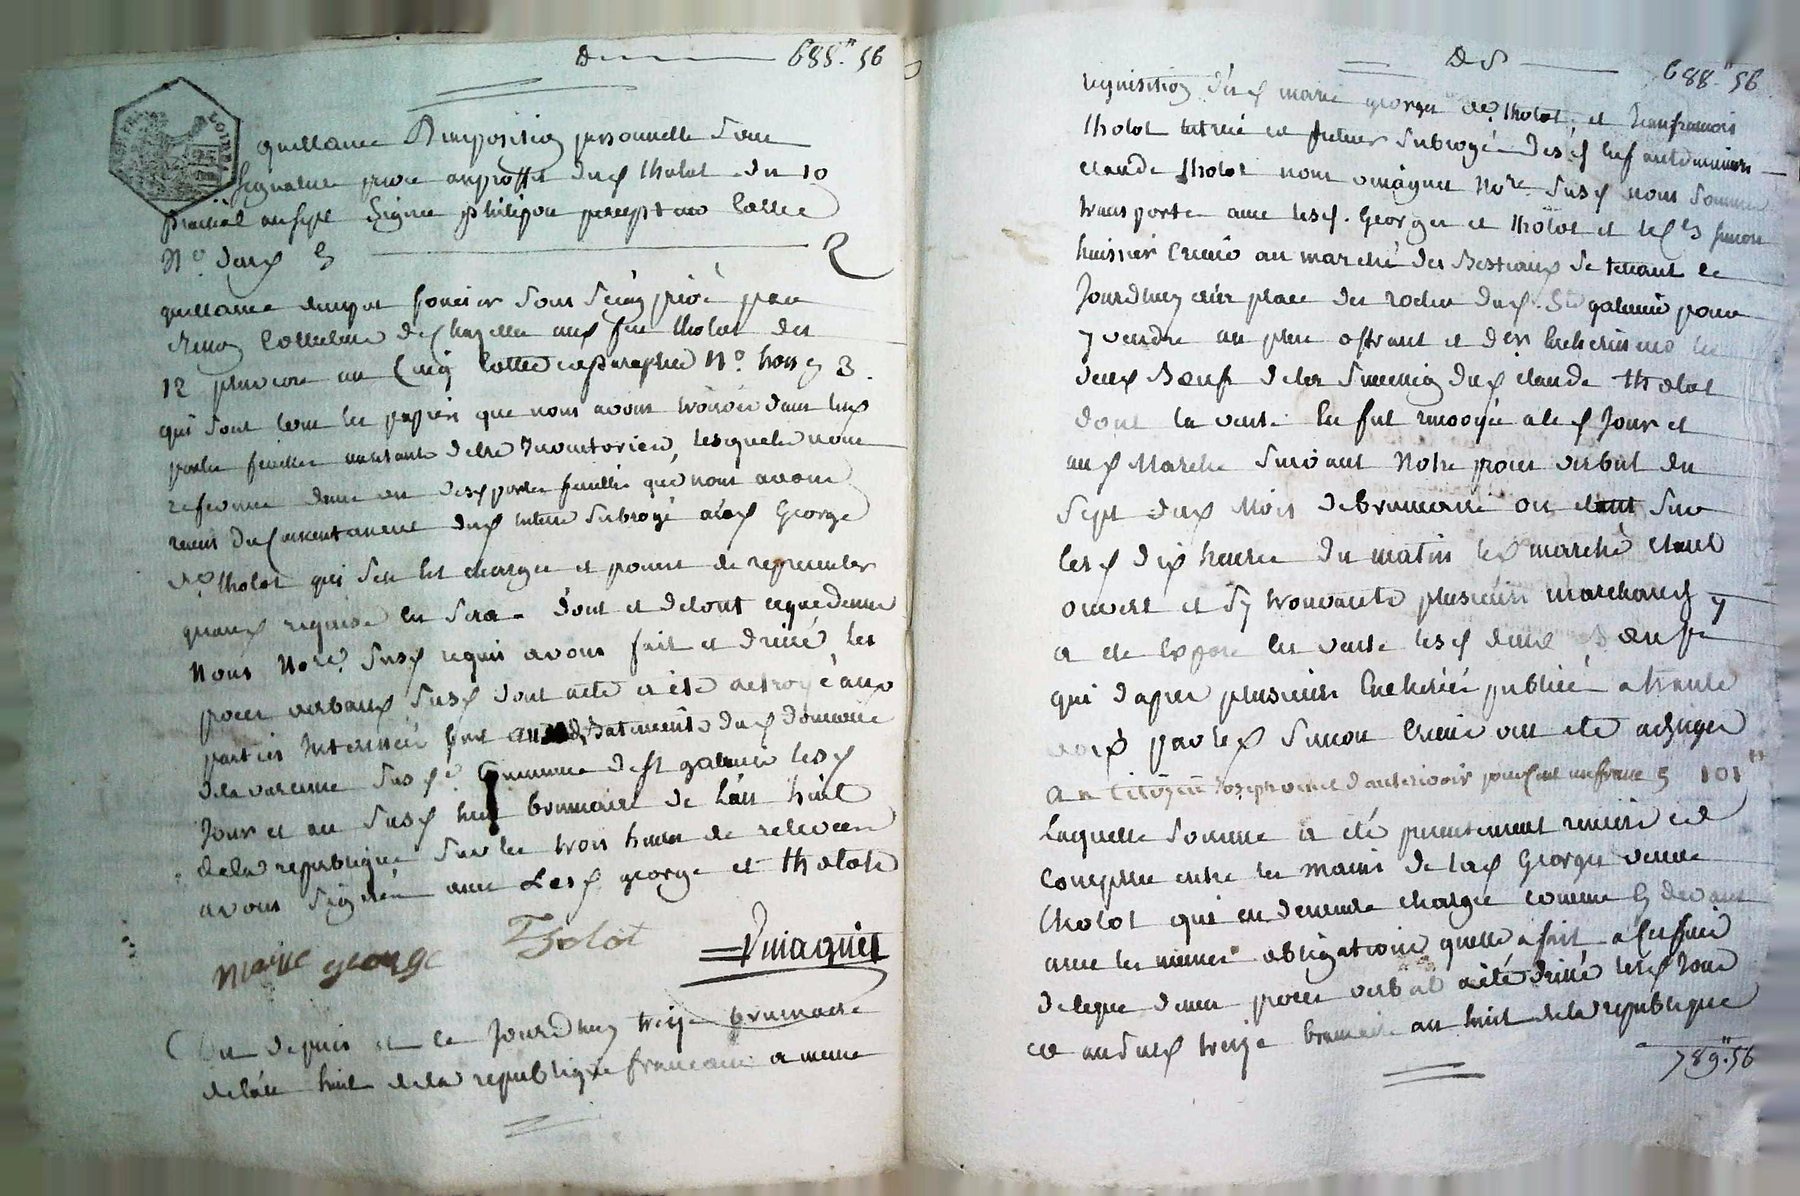 De 688.″56
quittance D'imposition personnelle sous
signature privé au proffit dud Tholot du 10
prairial an sept signé philipon percepteur Cottée
N.º deux 2
quittance d'impot foncier sous seing privé par
Collecteur de Chazelles aud feu tholot du
12 pluviose an Cinq Cottée et Paraphée N.º trois 3.
qui sont tous les papiers que nous avons trouvés dans led
porte feuille meritants detre Inventoriés, lesquels nous
refermé dans un desd portes feuilles que nous avons
remis du consentement dud tuteur Subrogé a lad George
Vve tholot qui s'en est chargée et promis de representer
quand requise en sera. Dont et detout cequedessus
Nous Nore. Susd requis avons fait et dréssé les
procès verbaux susd dont acte a été octroyé aux
parties Interessées Batiments dud domaine
delavarenne Susd. Commune de St galmier lesd
Jour et an susd huit brumaire de l'an huit
dela republique sur les trois heures de relevée
avons signé avec Lesd george et tholot
marie george Tholot
Du depuis et le Jourdhuy treize brumaire
delan huit dela republique francaise a meme
De S 688.″56
requisition desd marie george Ve. tholot et Jeanfrancois
tholot tuteur Subrogé desd enfants mineurs
claude tholot nous Nore susd nous sommes
transporté avec lesd. George et tholot et led Simon
huissier Crieur au marché des Bestiaux se tenant le
Jourdhuy place des roches dud. St galmier pour
y vendre au plus offrant et dernier Encherisseur les
deux Bœufs dela Succession dud claude tholot
dont la vente En fut renvoyée a led Jour et
aud Marché suivant Notre procès verbal du
sept dud Mois debrumaire ou etant sur
lesd dix heures du matin led marché etant
ouvert et s'y trouvants plusieurs marchands y
a été Exposé En vente lesd deux Bœufs
qui d'après plusieurs Encheres publiées a haute
voix par led Simon Crieur ont été adjugés
Au Citoyen Joseph pour cent un francs 101″
Laquelle somme a été presentement remise et
Comptée entre les mains de lad George veuve
tholot qui en demeure chargée comme Cy devant
avec les memes obligations quelle a fait
delaque dessus procès verbal a été dréssé lesd Jour
et an susd treize brumaire an huit dela republique
789.″56